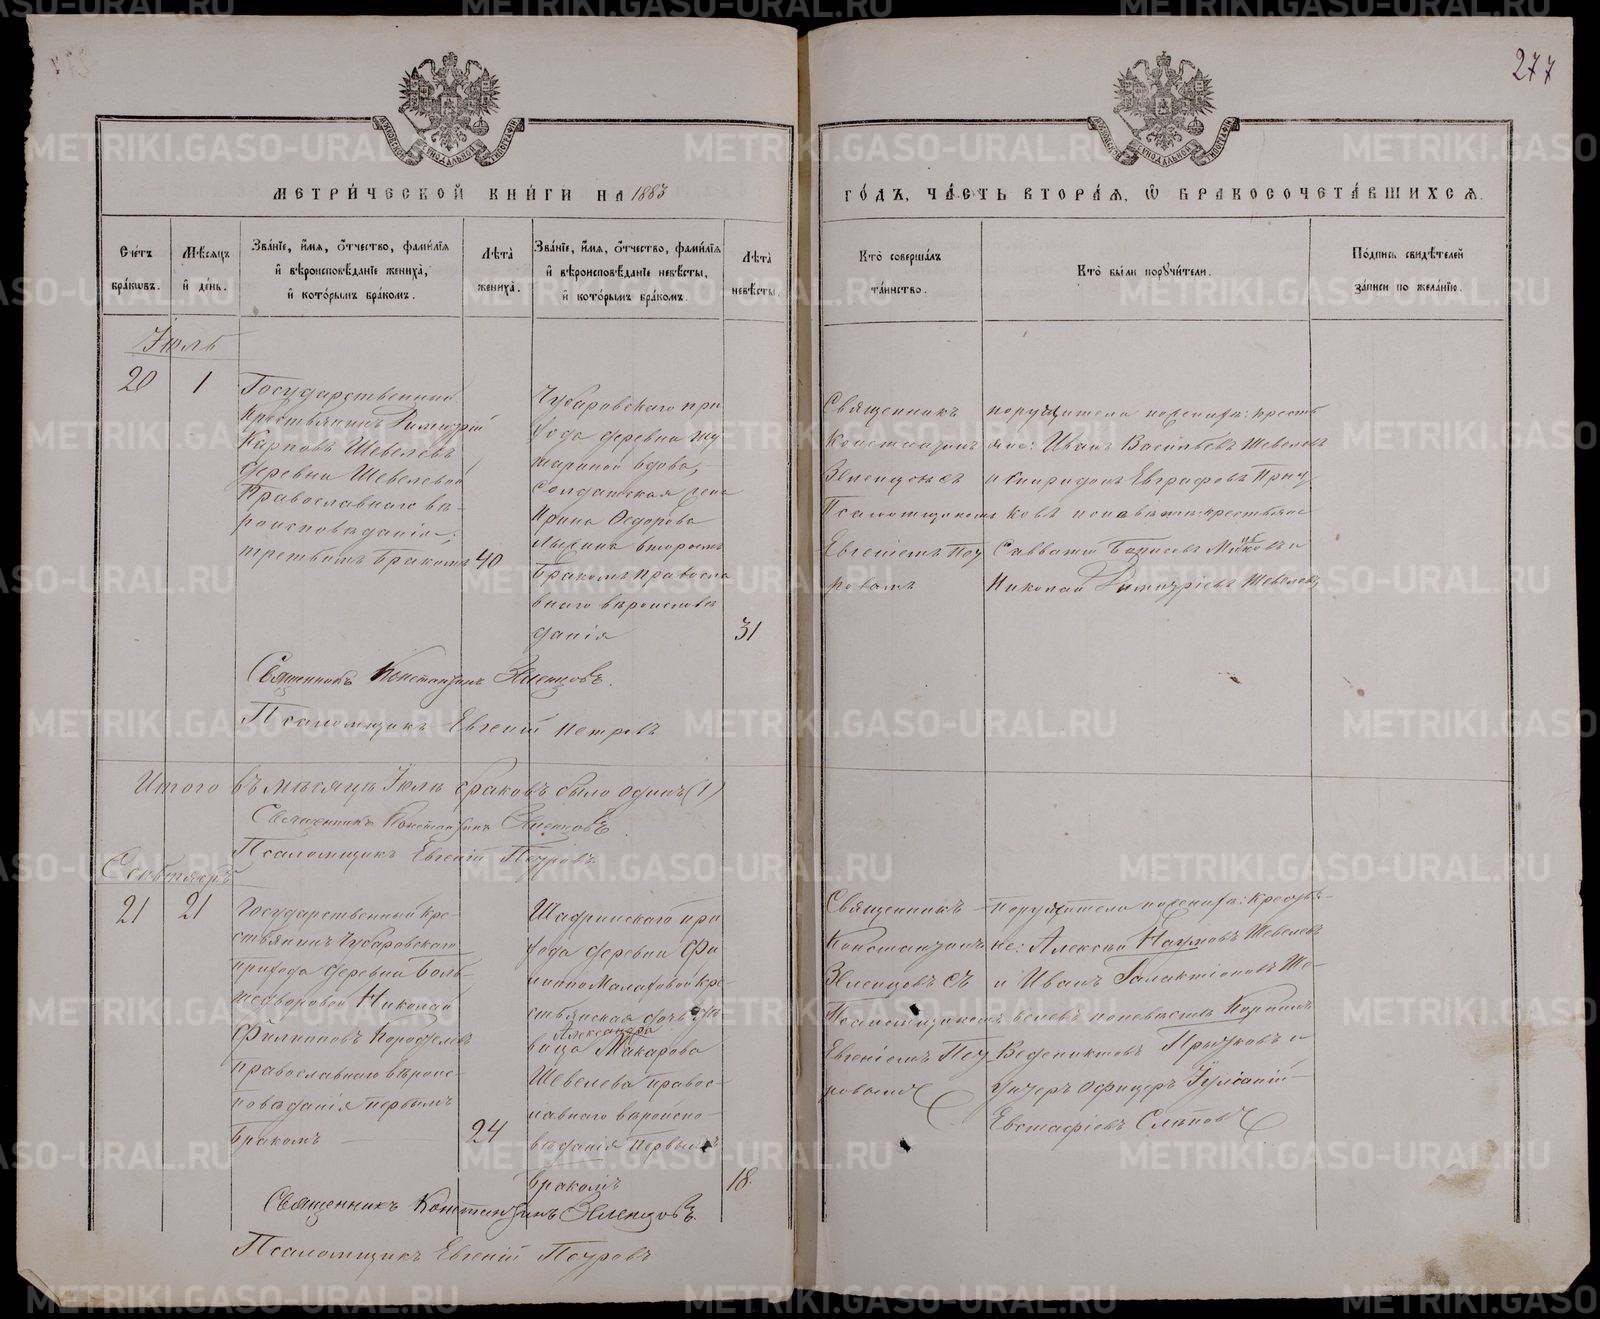 277
МЕТРИ́ЧЕСКОЙ КНИ́ГИ НА 1883
ГО́ДЪ, ЧА́СТЬ ВТОРА́Я, Ѽ БРАКОСОЧЕТА́ВШИХСЯ.
Сче́тъ бра́кѡвъ.
Мѣ́сяцъ й де́нь.
Зва́нїе, и́мя, ѻ́тчество, фами́лїя
й вѣроисповѣ́данїе жениха̀,
й кото́рымъ бра́комъ.
Лѣ́та жениха̀.
Зва́нїе, и́мя, ѻ́тчество, фами́лїя
й вѣроисповѣ́данїе невѣ́сты,
й кото́рымъ бра́комъ.
Лѣ́та невѣ́сты.
Кто̀ соверша́лъ та́инство.
Кто̀ бы́ли порꙋчи́тели.
По́дпись свидѣ́телей за́писи по жела́нїю.
Іюль
20
1
Государственный
Крестьянинъ Димитрій
Карповъ Шевелевъ
деревни Шевелевой
Православнаго вѣ-
роисповѣданія,
третьимъ бракомъ
40
Чубаровскаго при
хода деревни
вдова,
Солдатская жена
Ирина Ѳедорова
вторымъ
бракомъ правосла
внаго вѣроисповѣ
данія
31
Священникъ
Константинъ
Зыенцовъ съ
Псаломщикомъ
Евгеніемъ Пет
ровымъ
поручители по женихѣ: кресть
яне: Иванъ Васильевъ Шевелевъ
и Спиридонъ Евграфовъ
по невѣстѣ: крестьяне
Савватій Борисовъ
Николай Димитріевъ Шевелевъ
Священникъ Константинъ Зыенцовъ.
Псаломщикъ Евгеній Петровъ
Итого въ мѣсяцѣ Іюлѣ браковъ было одинъ (1)
Священникъ Константинъ Зыенцовъ.
Псаломщикъ Евгеній Петровъ
Сентябрь
21
21
Государственный кре-
стьянинъ Чубаровскаго
прихода деревни Боль-
шедворовой Николай
Филипповъ
православнаго вѣроис-
повѣданія первымъ
бракомъ
24
Шадринскаго при
хода деревни
Малаховой кре-
стьянская дочь дѣ
Александра
вица Макарова
Шевелева правос-
лавнаго вѣроиспо-
вѣданія первымъ
бракомъ
18.
Священникъ
Константинъ
Зыенцовъ съ
Псаломщикомъ
Евгеніемъ Пет
ровымъ
поручители по женихѣ: крестья-
не: Алексѣй Наумовъ Шевелевъ
и Иванъ Галактіоновъ Ше-
велевъ по невѣстѣ
Ведениктовъ и
Унтеръ Офицеръ
Евстафіевъ
Священникъ Константинъ Зыенцовъ.
Псаломщикъ Евгеній Петровъ
METRIKI.GASO-URAL.RU